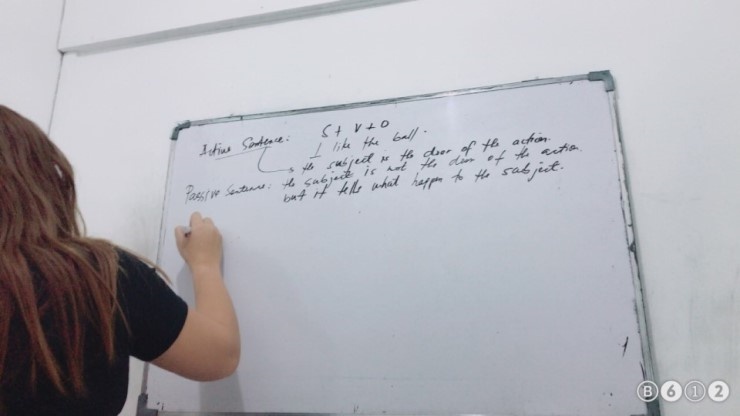 Active Sentence: S + V + O
I like the ball.
the subject is the doer of the action.
Passive Sentence: the subject is not the doer of the action.
but it tells what happen to the subject.
B612